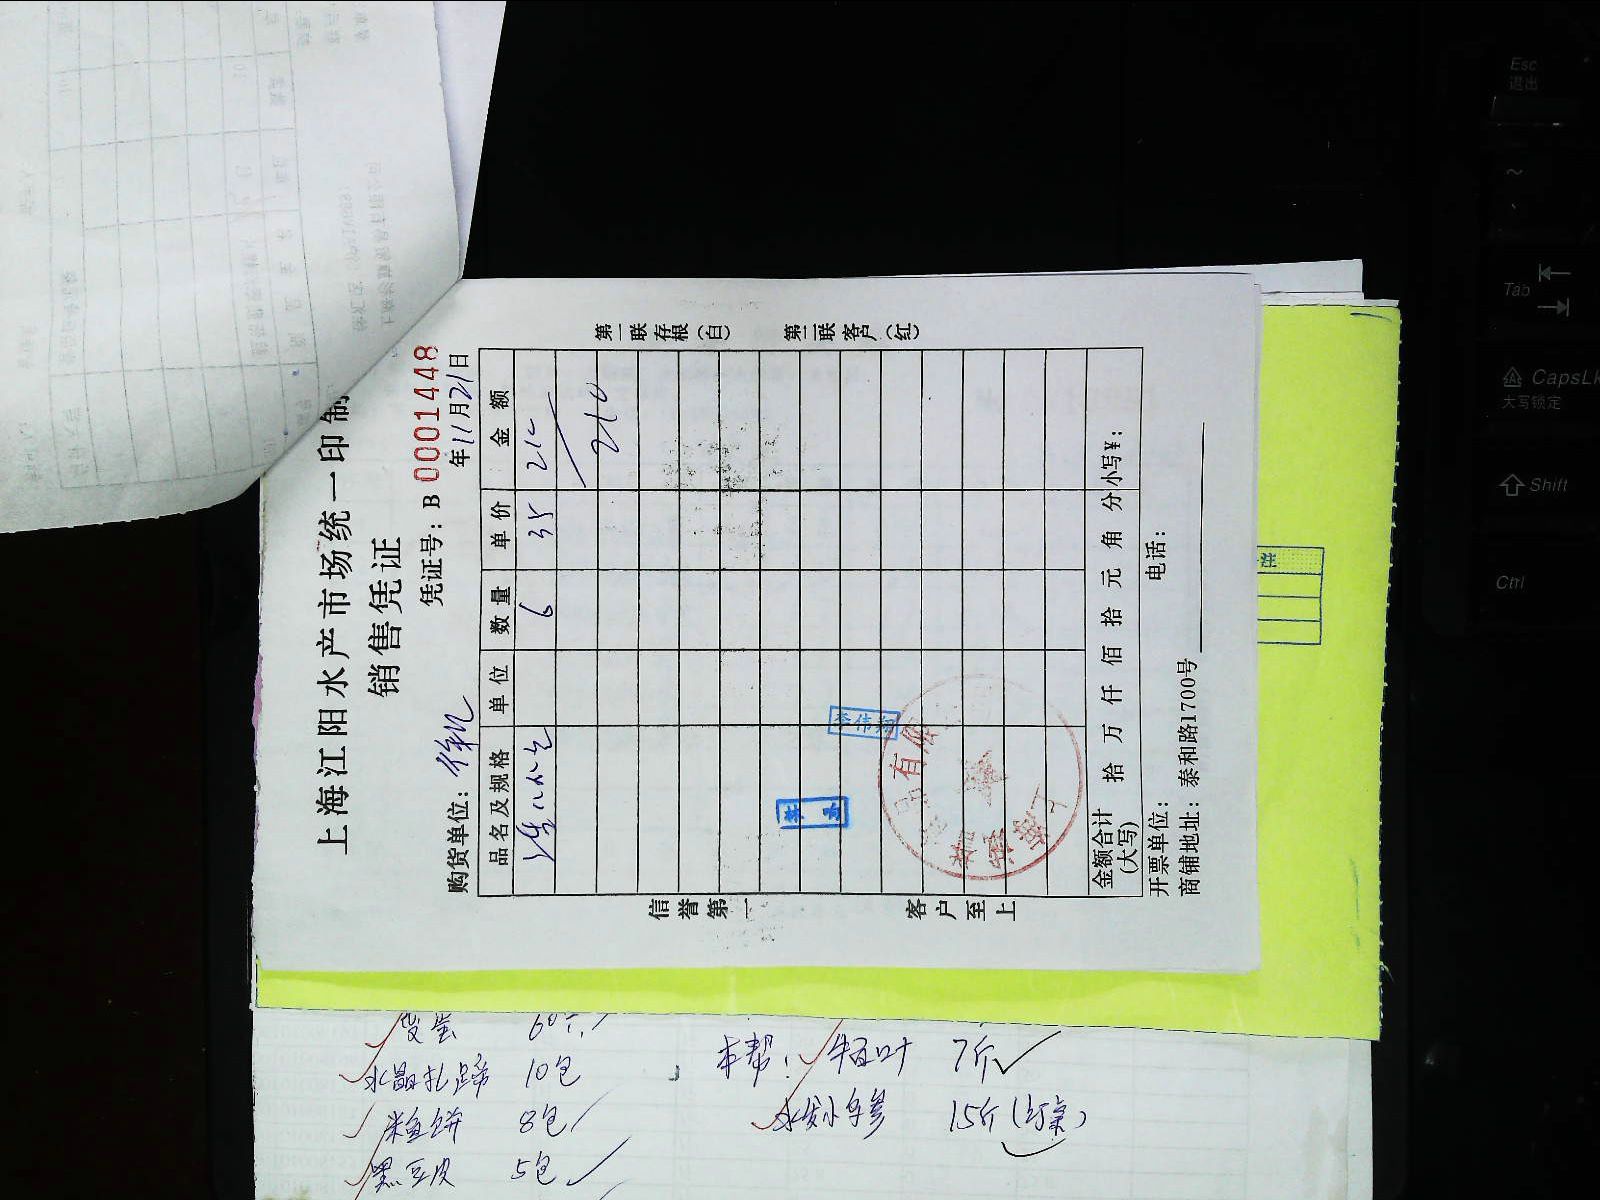 上海江阳水产市场统一印制
销售凭证
凭证号：B 0001448
购货单位：
年11月21日
品名及规格 单位 数量 单价 金额
6 35 210
210
第一联存根（白） 第二联客户（红）
信誉第一 客户至上
金额合计（大写） 拾 万 仟 佰 拾 元 角 分 小写¥：
开票单位： 电话：
商铺地址：泰和路1700号
水晶扎蹄 10包
米鱼饼 8包
黑豆皮 5包
本帮： 牛百叶 7斤
15斤
Esc
退出
~
Tab
CapsLk
大写锁定
Shift
Ctrl